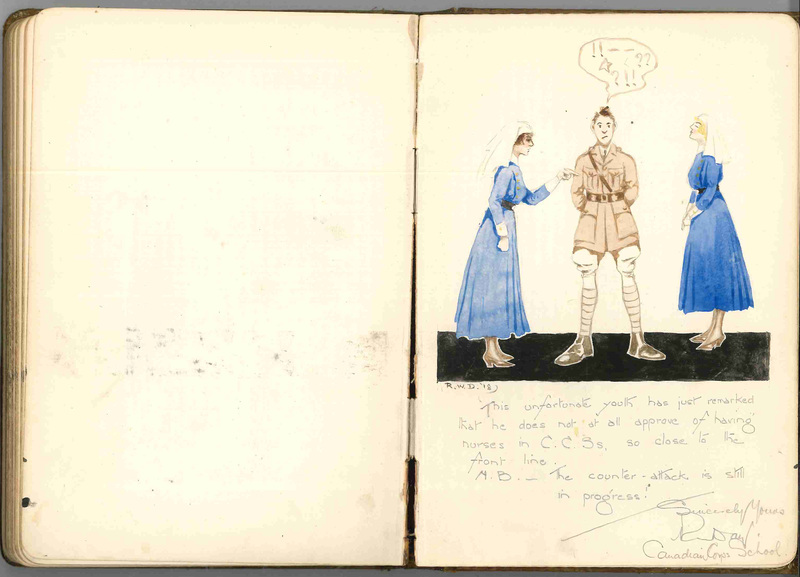 !! — —
? ??
?!!
(R.W.D. '18)
This unfortunate youth has just remarked
that he does not at all approve of having
nurses in C.C.Ss. so close to the
front line.
N.B. — The counter-attack is still
in progress!
Sincerely Yours
Canadian Corps School.